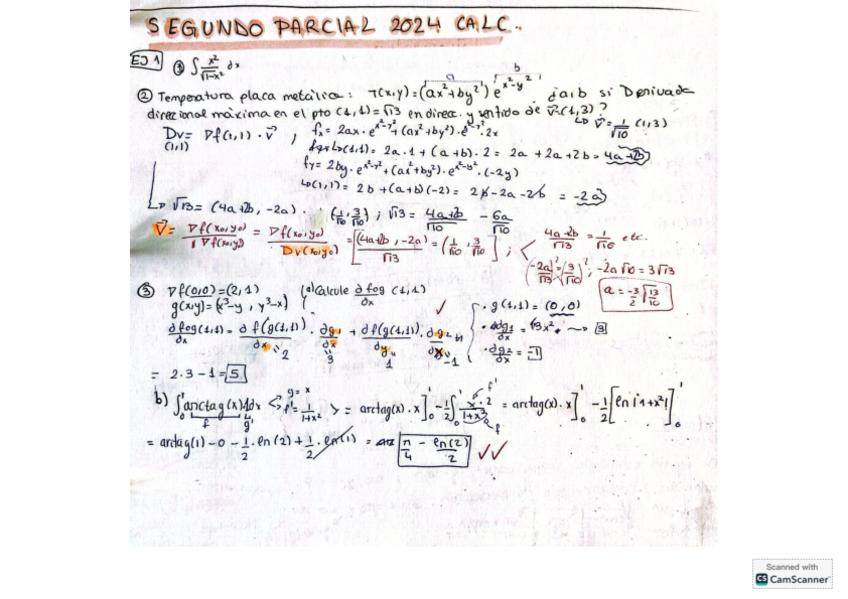 SEGUNDO PARCIAL 2024 CALC..
EJ 1 ① ∫ x²/√(1-x²) dx
② Temperatura placa metálica: T(x,y)=(ax²+by²) e^(x²-y²) ¿a,b si Derivada
direccional máxima en el pto (1,1)=√13 en direcc. y sentido de v=(1,3)?
↳ v⃗ = 1/√10 (1,3)
Dv(1,1) = ∇f(1,1) · v⃗ ; fx = 2ax·e^(x²-y²) + (ax²+by²)·e^(x²-y²)·2x
↳(1,1) = 2a·1 + (a+b)·2 = 2a + 2a + 2b = 4a+2b
fy = 2by·e^(x²-y²) + (ax²+by²)·e^(x²-y²)·(-2y)
↳(1,1) = 2b + (a+b)(-2) = 2b - 2a - 2b = -2a
↳ √13 = (4a+2b, -2a) · (1/√10, 3/√10) ; √13 = (4a+2b)/√10 - 6a/√10
v⃗ = ∇f(x0,y0)/|∇f(x0,y0)| = ∇f(x0,y0)/Dv(x0,y0) = [(4a+2b, -2a)/√13 = (1/√10, 3/√10)] ; < (4a+2b)/√13 = 1/√10 etc.
(-2a/√13)² = (3/√10)² ; -2a√10 = 3√13
a = -3/2 √(13/10)
③ ∇f(0,0)=(2,1) (a) Calcule ∂fog/∂x (1,1)
g(x,y)=(x³-y, y³-x)
✓ · g(1,1) = (0,0)
∂fog(1,1)/∂x = ∂f(g(1,1))/∂x · ∂g1/∂x + ∂f(g(1,1))/∂y · ∂g2/∂x · ∂g1/∂x = 3x² ~> 3
2 3 1 -1 · ∂g2/∂x = -1
= 2·3-1 = 5
b) ∫₀¹ arctag(x)·1dx <g=x f'=1/(1+x²)> = arctag(x)·x]₀¹ - 1/2 ∫₀¹ x·2/(1+x²) = arctag(x)·x]₀¹ - 1/2 [ln|1+x²|]₀¹
= arctag(1) - 0 - 1/2·ln(2) + 1/2·ln(1) = π/4 - ln(2)/2 ✓✓
Scanned with
CS CamScanner